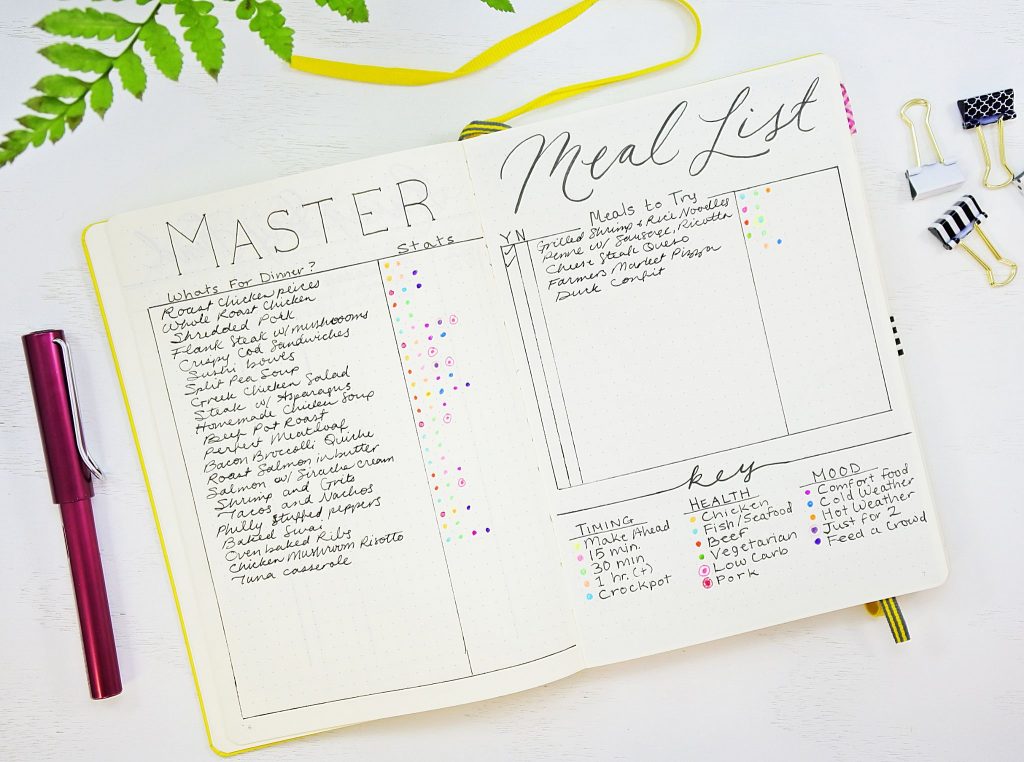 MASTER
Whats For Dinner?
Stats
Roast Chicken pieces
Whole Roast Chicken
Shredded Pork
Flank Steak w/ mushrooms
Crispy Cod Sandwiches
Sushi bowls
Split Pea Soup
Greek Chicken Salad
Steak w/ Asparagus
Homemade Chicken Soup
Beef Pot Roast
Perfect Meatloaf
Bacon Broccolli Quiche
Roast Salmon in butter
Salmon w/ Siracha cream
Shrimp and Grits
Tacos and Nachos
Philly Stuffed peppers
Baked Swai
Oven baked Ribs
Chicken Mushroom Risotto
Tuna casserole
Meal List
Y N
Meals to Try
Grilled Shrimp & Rice Noodles
Penne w/ Sausage, Ricotta
Cheese Steak Queso
Farmers Market Pizza
Duck Confit
key
TIMING
Make Ahead
15 min.
30 min
1 hr. (+)
Crockpot
HEALTH
Chicken
Fish/Seafood
Beef
Vegetarian
Low Carb
Pork
MOOD
Comfort food
Cold Weather
Hot Weather
Just for 2
Feed a Crowd